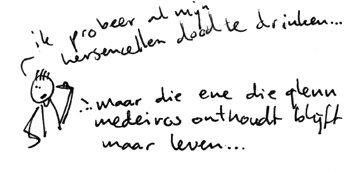 ik probeer al mijn
hersencellen dood te drinken...
... maar die ene die glenn
medeiros onthoudt blijft
maar leven...